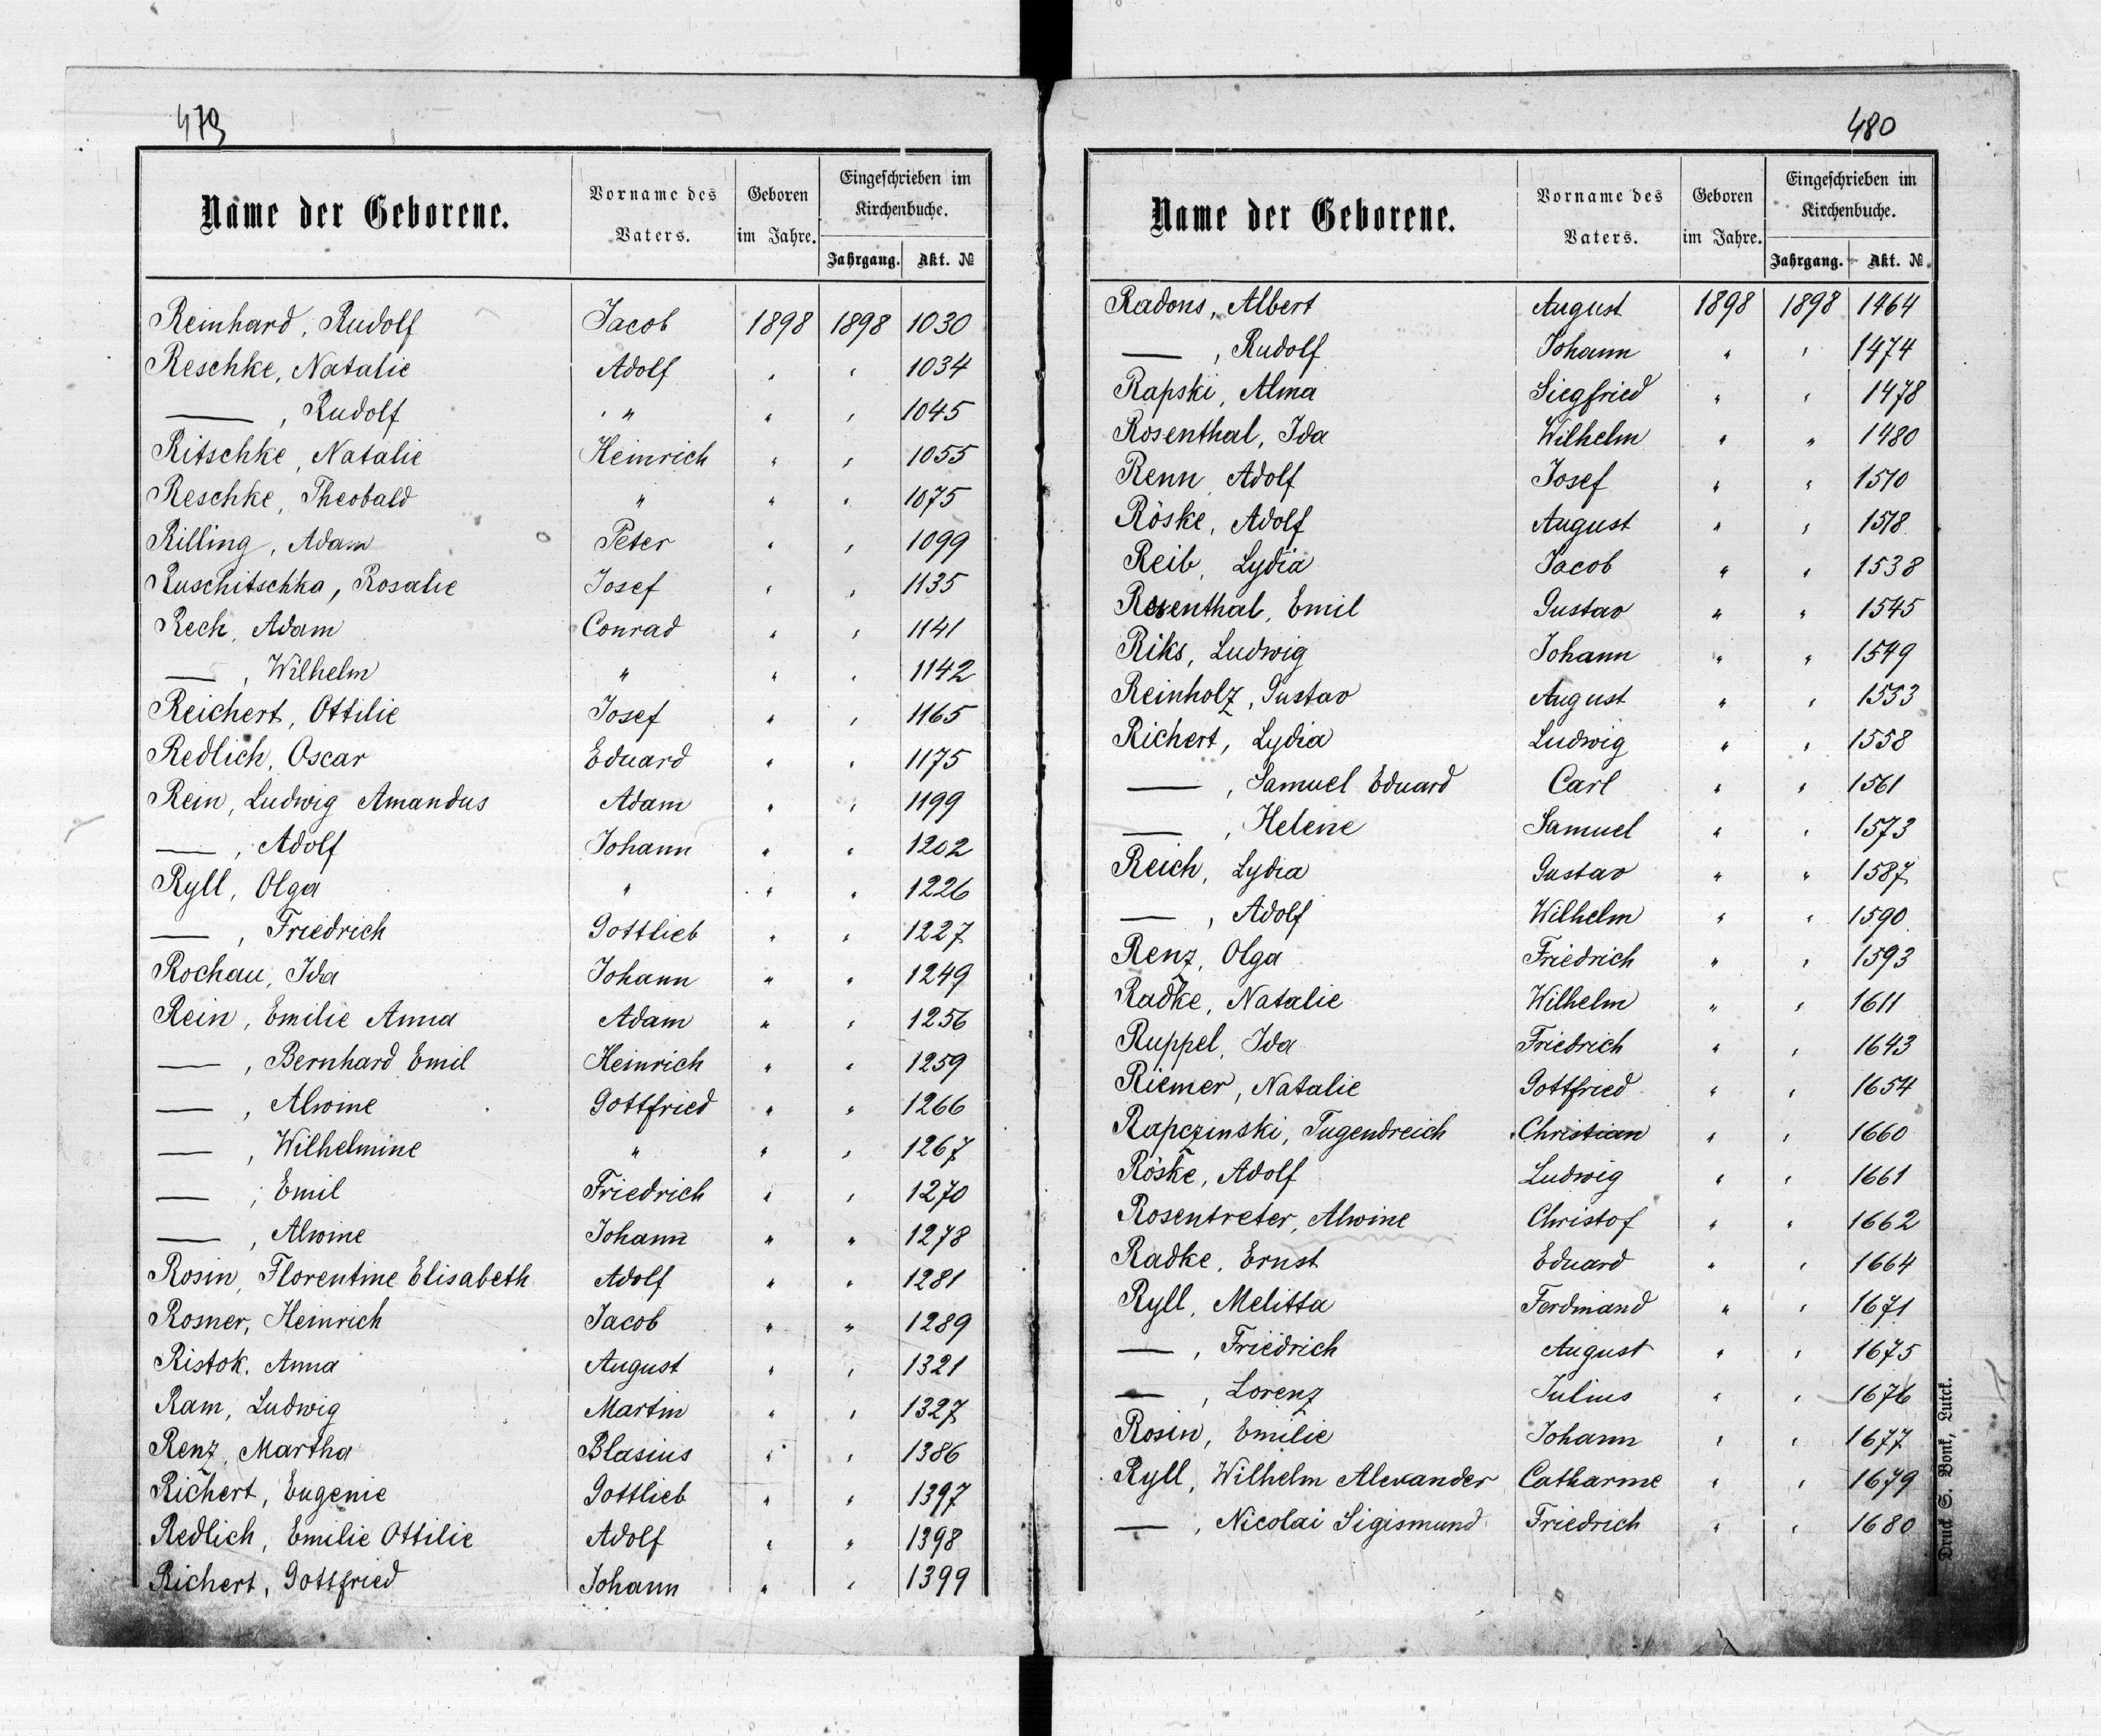 479
Name der Geborene. Vorname des Vaters. Geboren im Jahre. Eingeschrieben im Kirchenbuche. Jahrgang. Akt. №
Reinhard, Rudolf Jacob 1898 1898 1030
Reschke, Natalie Adolf " " 1034
—, Rudolf " " " 1045
Ritschke, Natalie Heinrich " " 1055
Reschke, Theobald " " " 1075
Rilling, Adam Peter " " 1099
Ruschitschka, Rosalie Josef " " 1135
Rech, Adam Conrad " " 1141
—, Wilhelm " " " 1142
Reichert, Ottilie Josef " " 1165
Redlich, Oscar Eduard " " 1175
Rein, Ludwig Amandus Adam " " 1199
—, Adolf Johann " " 1202
Ryll, Olga " " " 1226
—, Friedrich Gottlieb " " 1227
Rochau, Ida Johann " " 1249
Rein, Emilie Anna Adam " " 1256
—, Bernhard Emil Heinrich " " 1259
—, Alwine Gottfried " " 1266
—, Wilhelmine " " " 1267
—, Emil Friedrich " " 1270
—, Alwine Johann " " 1278
Rosin, Florentine Elisabeth Adolf " " 1281
Rosner, Heinrich Jacob " " 1289
Ristok, Anna August " " 1321
Ram, Ludwig Martin " " 1327
Renz, Martha Blasius " " 1386
Richert, Eugenie Gottlieb " " 1397
Redlich, Emilie Ottilie Adolf " " 1398
Richert, Gottfried Johann " " 1399
480
Name der Geborene. Vorname des Vaters. Geboren im Jahre. Eingeschrieben im Kirchenbuche. Jahrgang. Akt. №
Radons, Albert August 1898 1898 1464
—, Rudolf Johann " " 1474
Rapski, Alma Siegfried " " 1478
Rosenthal, Ida Wilhelm " " 1480
Renn, Adolf Josef " " 1510
Röske, Adolf August " " 1518
Reib, Lydia Jacob " " 1538
Rosenthal, Emil Gustav " " 1545
Riks, Ludwig Johann " " 1549
Reinholz, Gustav August " " 1553
Richert, Lydia Ludwig " " 1558
—, Samuel Eduard Carl " " 1561
—, Helene Samuel " " 1573
Reich, Lydia Gustav " " 1587
—, Adolf Wilhelm " " 1590
Renz, Olga Friedrich " " 1593
Radke, Natalie Wilhelm " " 1611
Ruppel, Ida Friedrich " " 1643
Riemer, Natalie Gottfried " " 1654
Rapczinski, Tugendreich Christian " " 1660
Röske, Adolf Ludwig " " 1661
Rosentreter, Alwine Christof " " 1662
Radke, Ernst Eduard " " 1664
Ryll, Melitta Ferdinand " " 1671
—, Friedrich August " " 1675
—, Lorenz Julius " " 1676
Rosin, Emilie Johann " " 1677
Ryll, Wilhelm Alexander Catharine " " 1679
—, Nicolai Sigismund Friedrich " " 1680
Druck S. Bonk, Lutck.